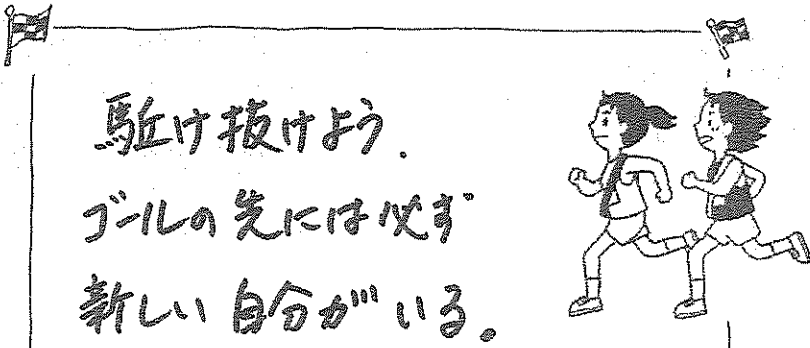 駈け抜けよう.
ゴールの先には必ず
新しい自分がいる。